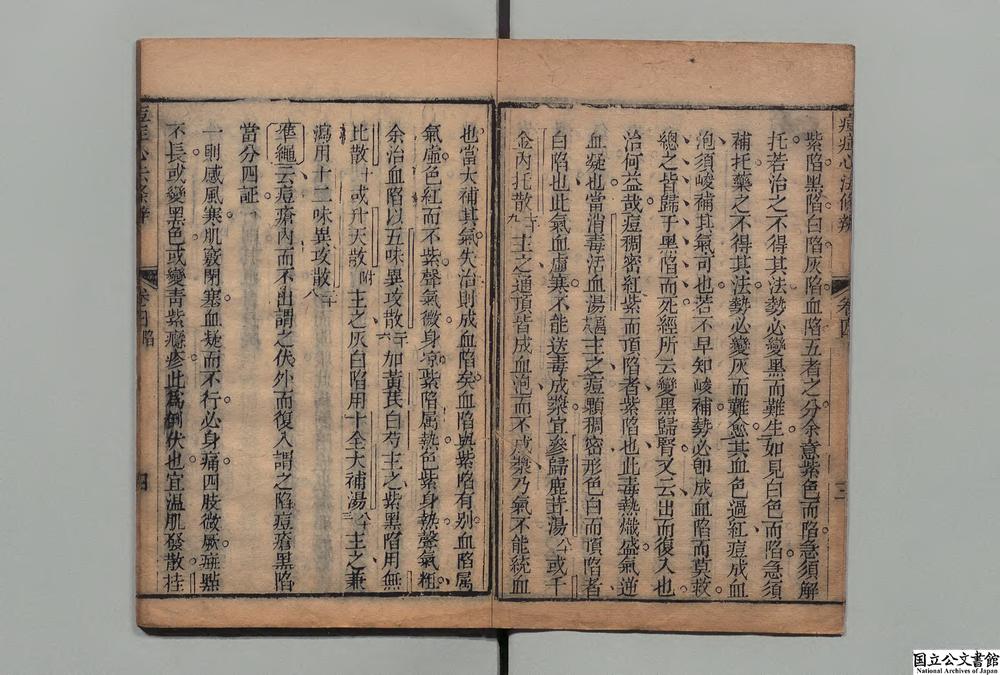 痘症心法條辨
卷四
三
紫陷黑陷白陷灰陷血陷五者之分余意紫色而陷急須解
托若治之不得其法勢必變黑而難生如見白色而陷急須
補托藥之不得其法勢必變灰而難愈其血色過紅痘成血
泡須峻補其氣可也若不早知峻補勢必即成血陷而莫救
總之皆歸于黑陷而死經所云變黑歸腎又云出而復入也
治何益哉痘稠密紅紫而頂陷者紫陷也此毒熱熾盛氣逆
血凝也當消毒活血湯主之痘顆稠密形色白而頂陷者
白陷也此氣血虛寒不能送毒成漿宜參歸鹿茸湯或千
金內托散主之通頂皆成血泡而不成漿乃氣不能統血
也當大補其氣失治則成血陷矣血陷與紫陷有別血陷屬
氣虛色紅而不紫聲氣微身凉紫陷属熱色紫身熱聲氣粗
余治血陷以五味異攻散加黃芪白芍主之紫黑陷用無
比散或升天散附主之灰白陷用十全大補湯主之兼
瀉用十二味異攻散
準繩云痘瘡內而不出謂之伏外而復入謂之陷痘瘡黑陷
當分四証
一則感風寒肌竅閉塞血凝而不行必身痛四肢微厥斑點
不長或變黑色或變青紫癮疹此為倒伏也宜温肌發散桂
卷四 陷
四
国立公文書館
National Archives of Japan